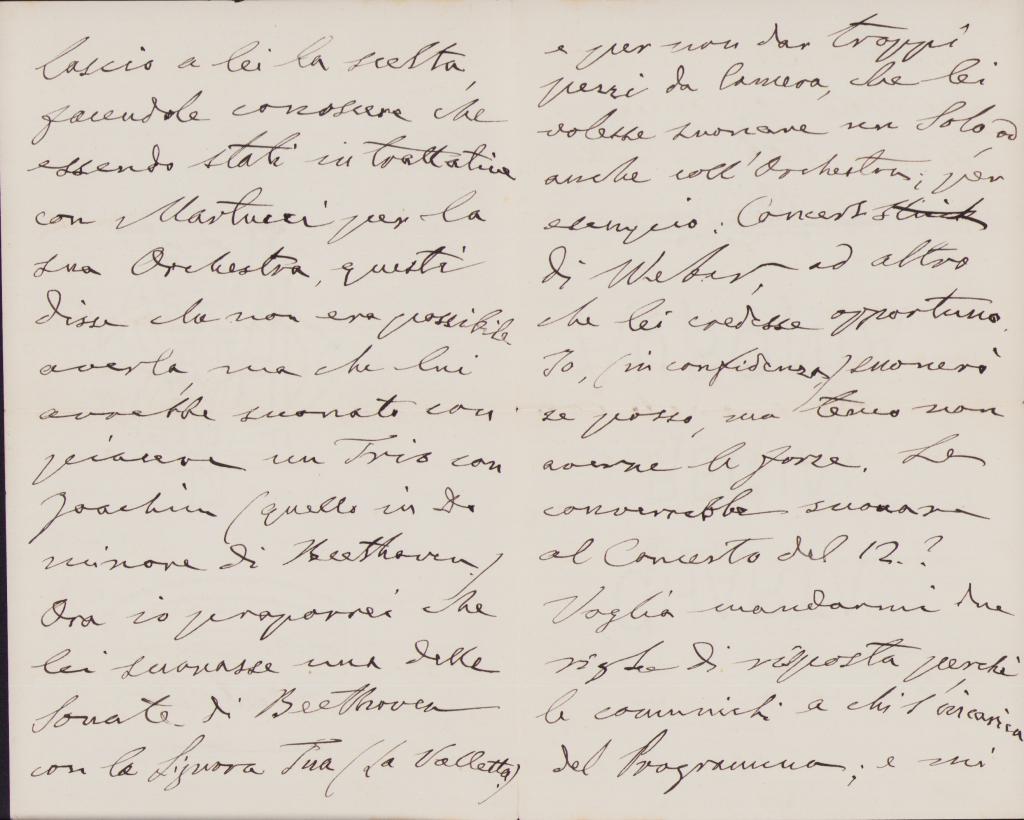 lascio a lei la scelta,
facendole conoscere che
essendo stati in trattative
con Martucci per la
sua Orchestra, questi
disse che non era possibile
averla, ma che lui
avrebbe suonato con
piacere un Trio con
Joachim (quello in Do
minore di Beethoven.)
Ora io proporrei che
lei suonasse una delle
Sonate di Beethoven
con la Signora Tua (La Valletta)
e per non dar troppi
pezzi da Camera, che lei
volesse suonare un Solo, od
anche coll'Orchestra; per
esempio: Concertstück
di Weber, od altro
che lei credesse opportuno.
Io, (in confidenza,) suonerò
se posso, ma temo non
averne le forze. Le
converrebbe suonare
al Concerto del 12.?
Voglia mandarmi due
righe di risposta, perchè
le comunichi a chi s'incarica
del Programma; e mi